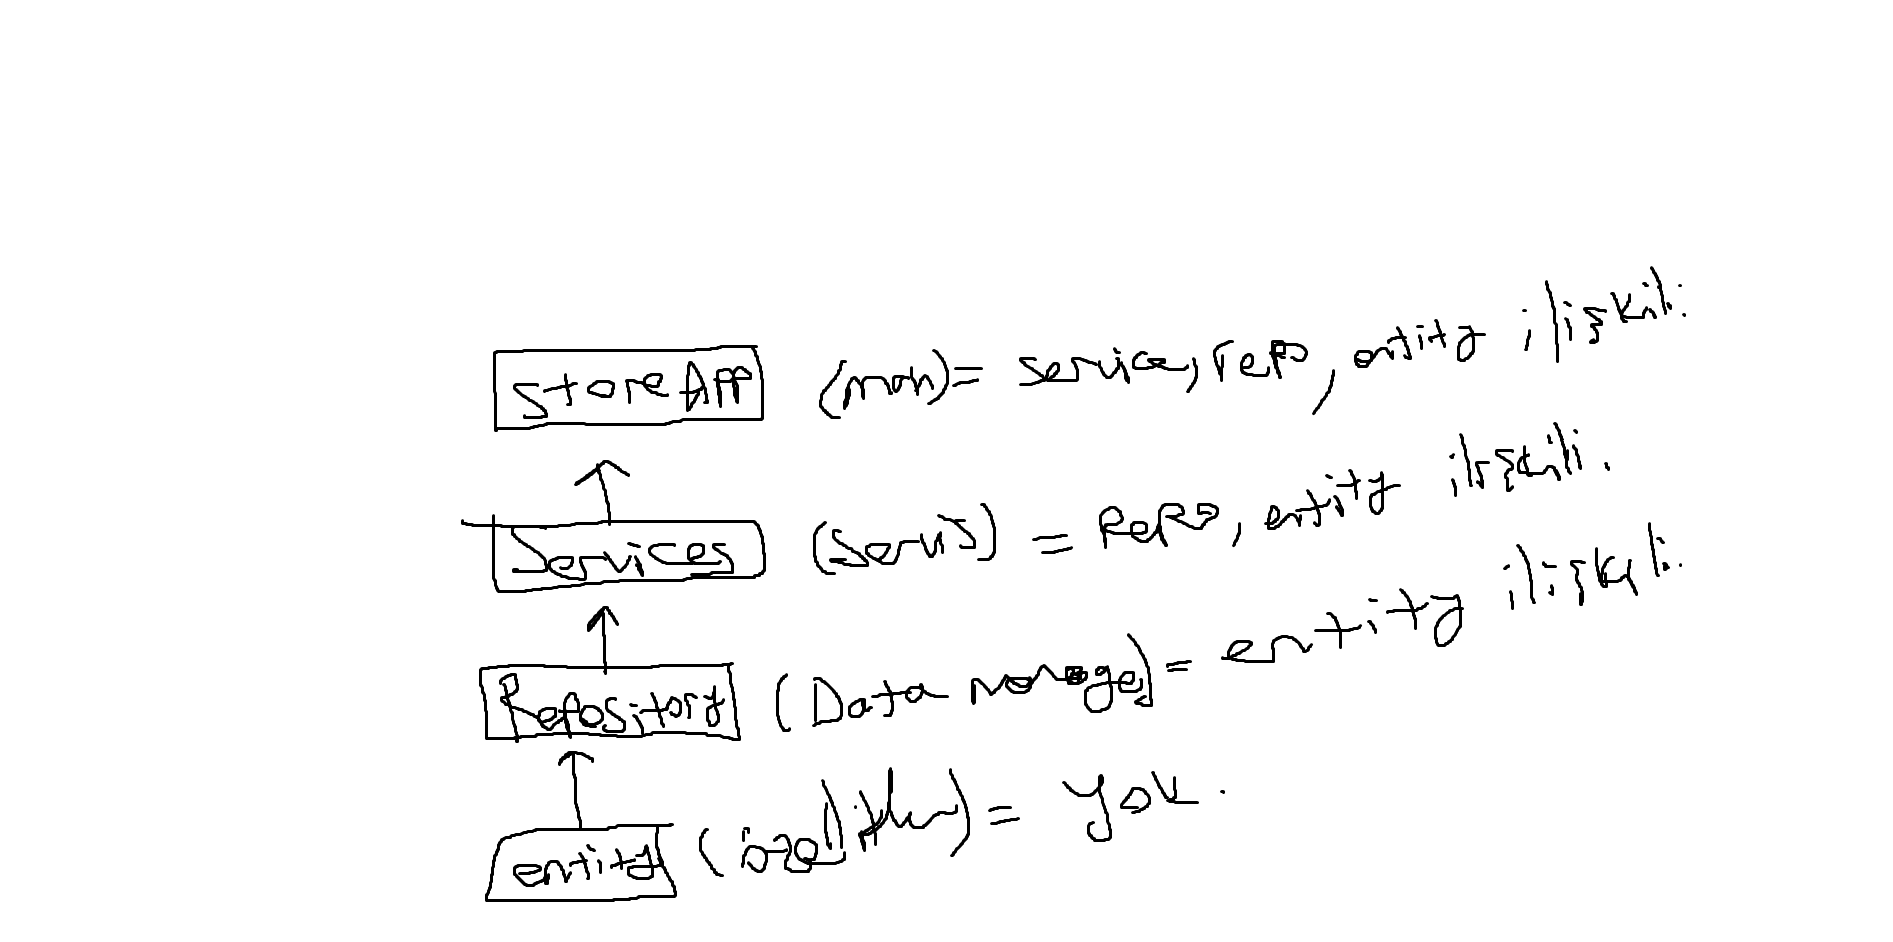 StoreApp (main) = service, repo, entity ilişkili.
Services (Servis) = Repo, entity ilişkili.
Repository (Data manage) = entity ilişkili.
entity (özellikler) = yok.